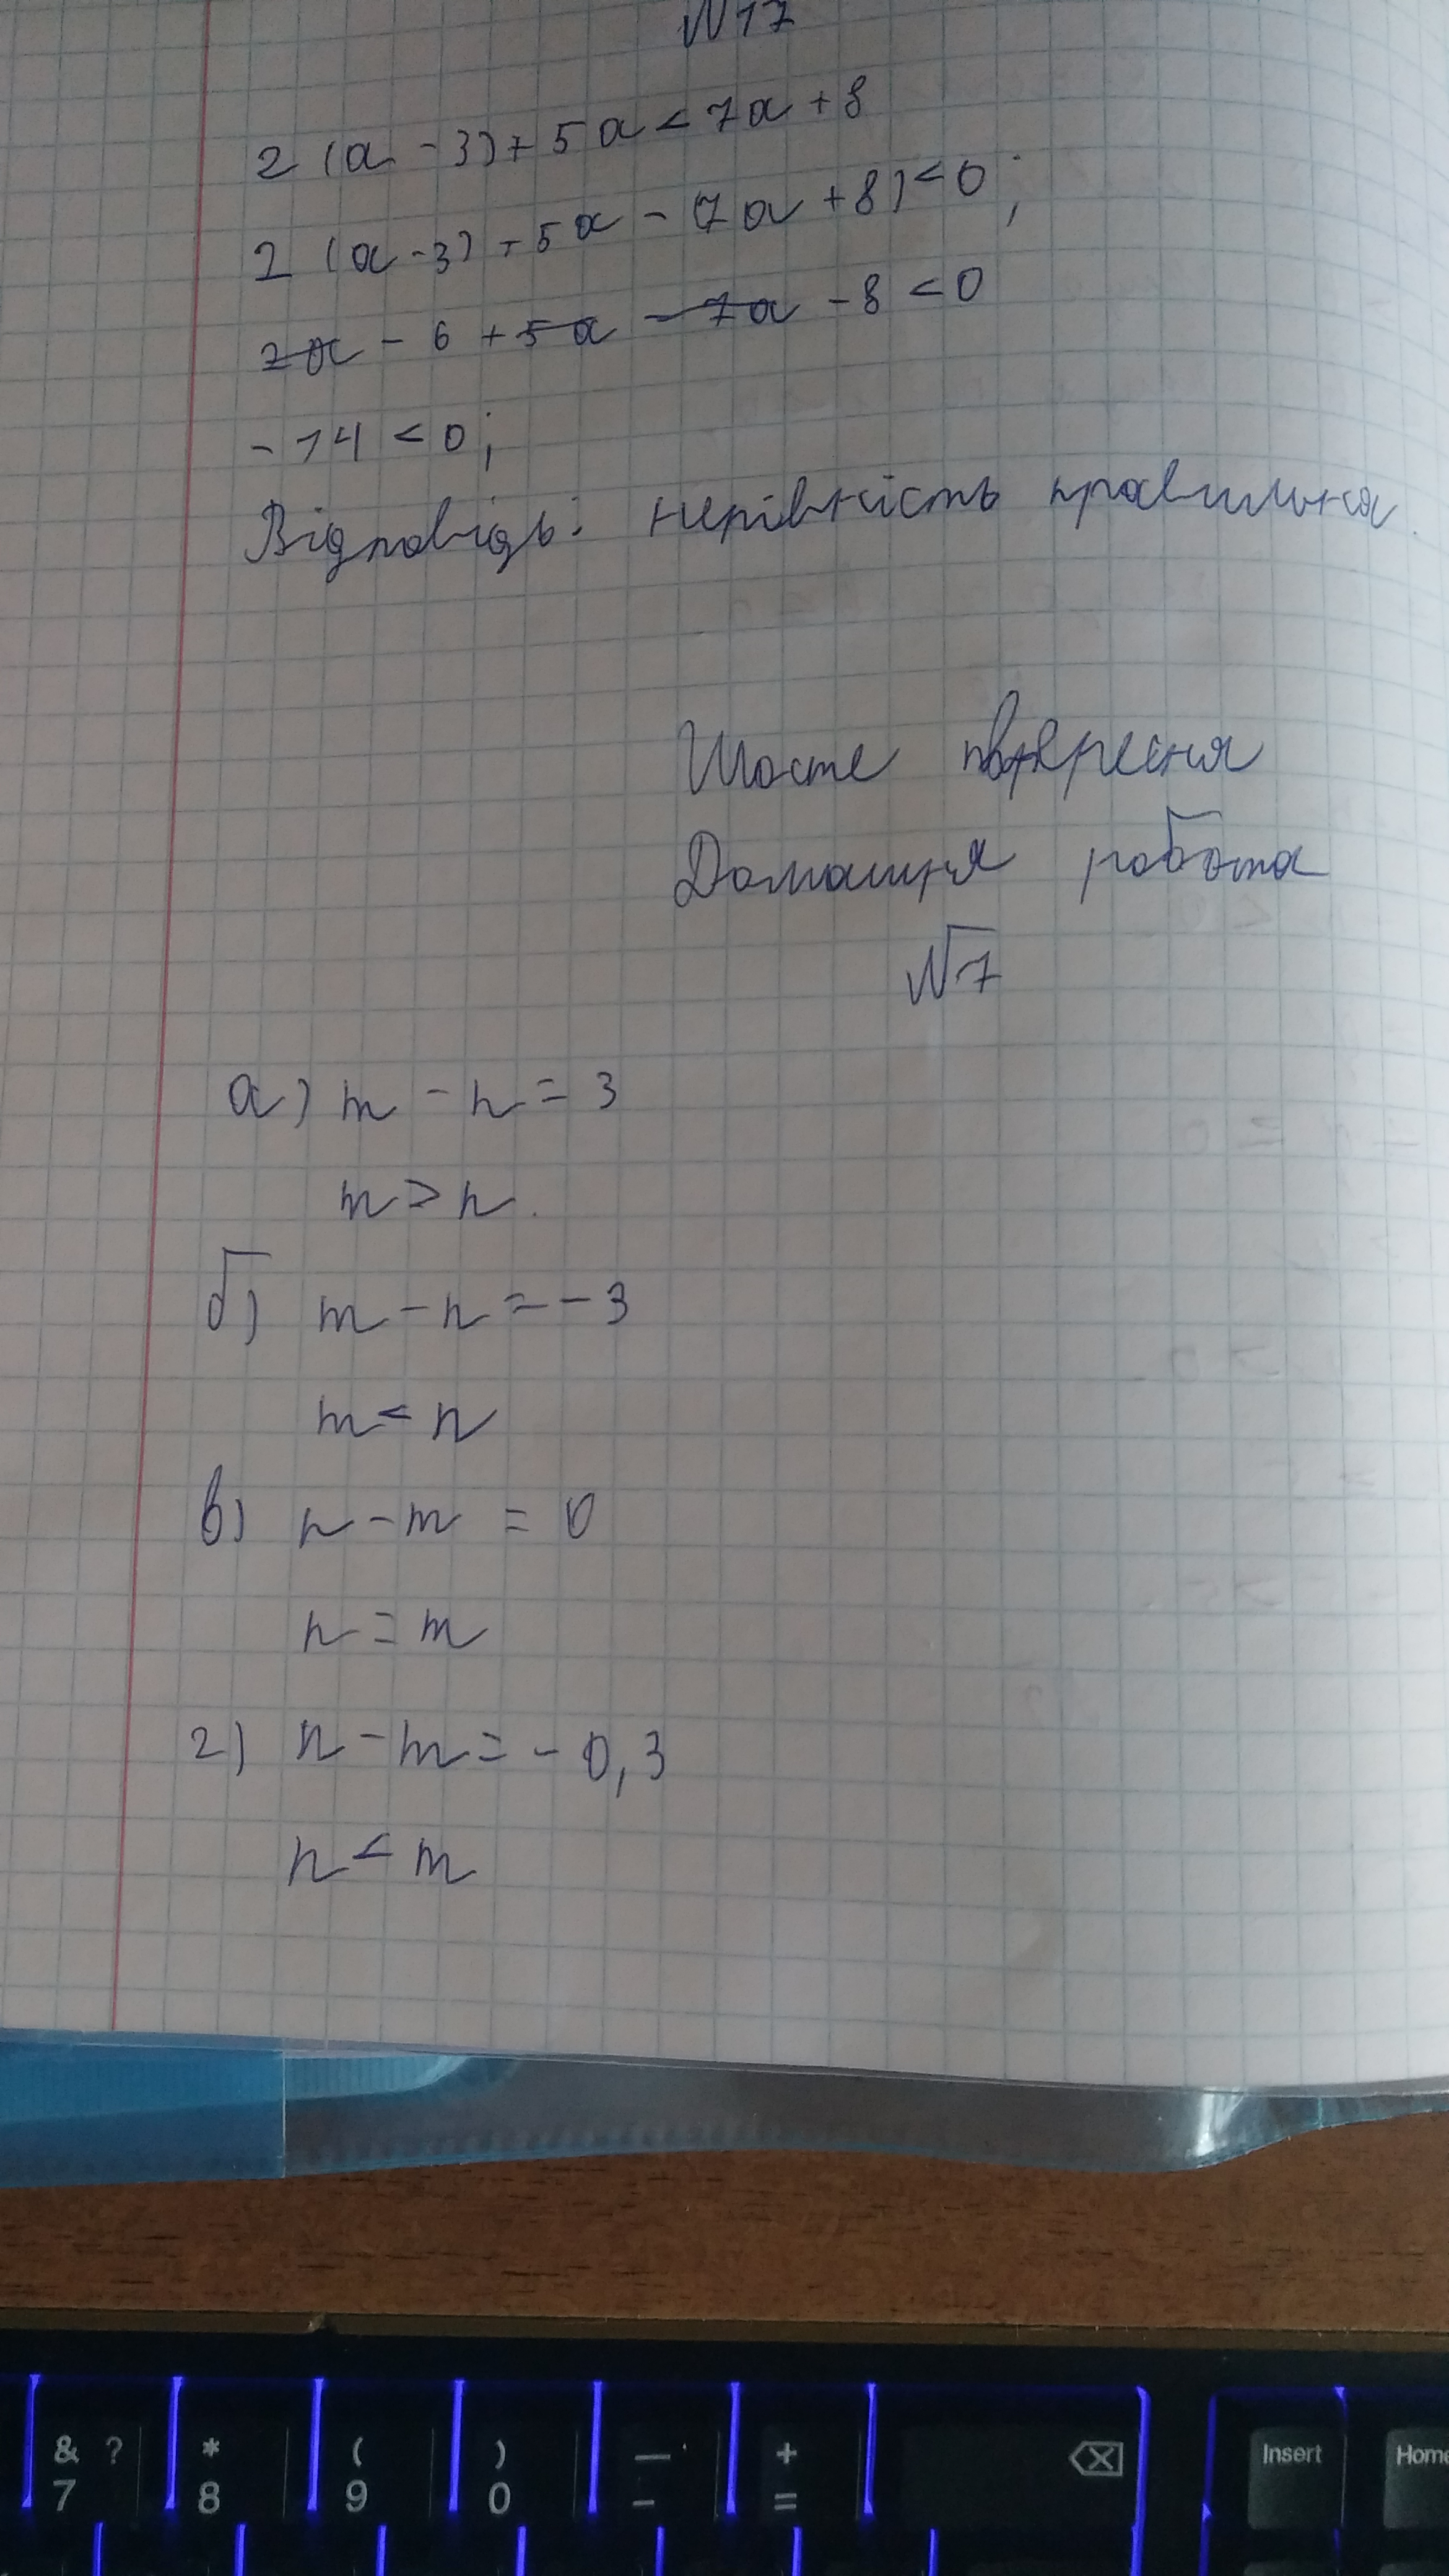 №17
2(a-3)+5a<7a+8
2(a-3)+5a-(7a+8)<0;
2a-6+5a-7a-8<0
-14<0;
Відповідь: нерівність правильна.
Шосте вересня
Домашня робота
№7
а) m-n=3
m>n.
б) m-n=-3
m<n
в) n-m=0
n=m
г) n-m=-0,3
n<m
& ? * ( ) — + Insert Home
7 8 9 0 - =